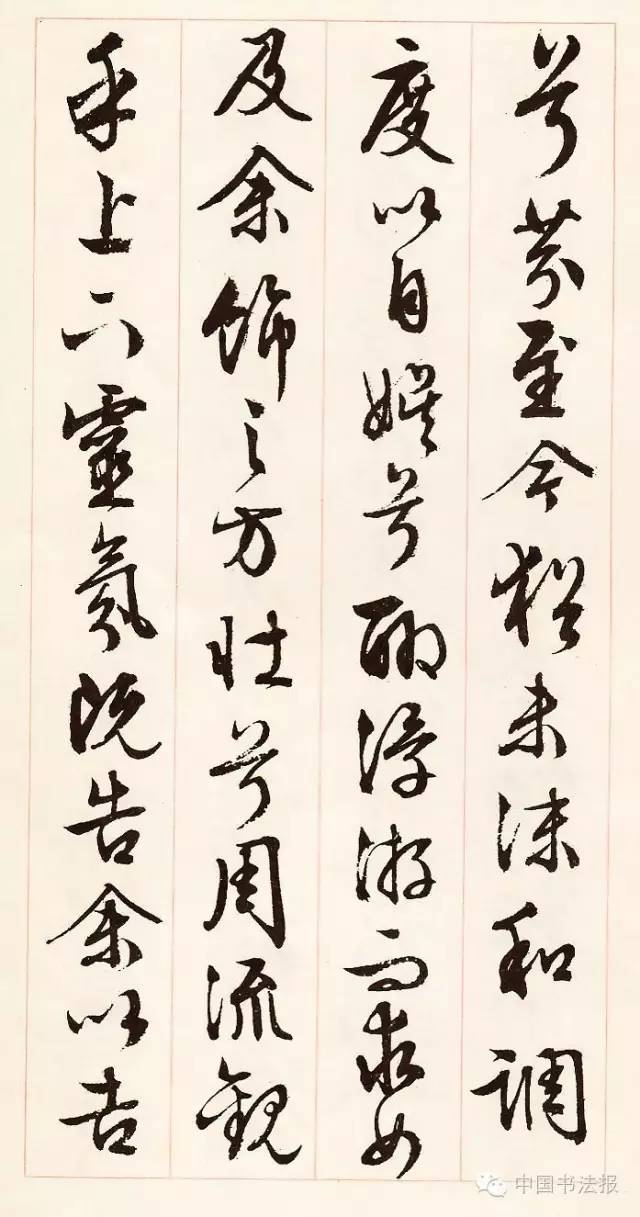 兮芬至今犹未沬和调
度以自娱兮聊浮游而求女
及余饰之方壮兮周流观
乎上下灵氛既告余以吉
中国书法报